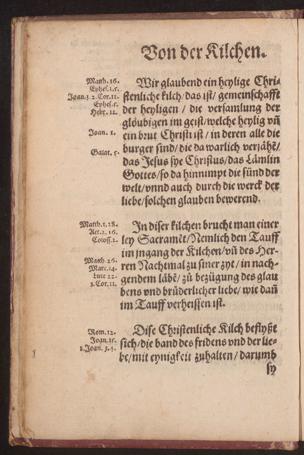 Von der Kilchen.
Matth. 16.
Ephes. 1. 5.
Joan. 3. 2. Cor. 11.
Ephes. 5.
Hebr. 12.
Joan. 1.
Galat. 5.
Wir glaubend ein heylige Chri-
stenliche kilch/ das ist/ gemeinschafft
der heyligen / die versamlung der
glöubigen im geist/ welche heylig vñ
ein brut Christi ist / in deren alle die
burger sind/ die da warlich verjähẽ/
das Jesus sye Christus/ das Lämlin
Gottes/ so da hinnimpt die sünd der
welt/ vnnd auch durch die werck der
liebe/ solchen glauben bewerend.
Matth. 28.
Act. 2. 16.
Coloss. 2.
Matth. 26.
Marc. 14.
Luce 22.
1. Cor. 11.
In diser kilchen brucht man einer
ley Sacramẽt/ Nemlich den Tauff
im jngang der Kilchen/ vñ des Her-
ren Nachtmal zu siner zyt / in nach-
gendem läbẽ/ zů bezügung des glau
bens vnd brüderlicher liebe/ wie dañ
im Tauff verheissen ist.
Rom. 12.
Joan. 15.
1. Joan. 3. 5.
Dise Christenliche Kilch beflyßt
sich/ die band des fridens vnd der lie-
be/ mit eynigkeit zuhalten/ darumb
sy